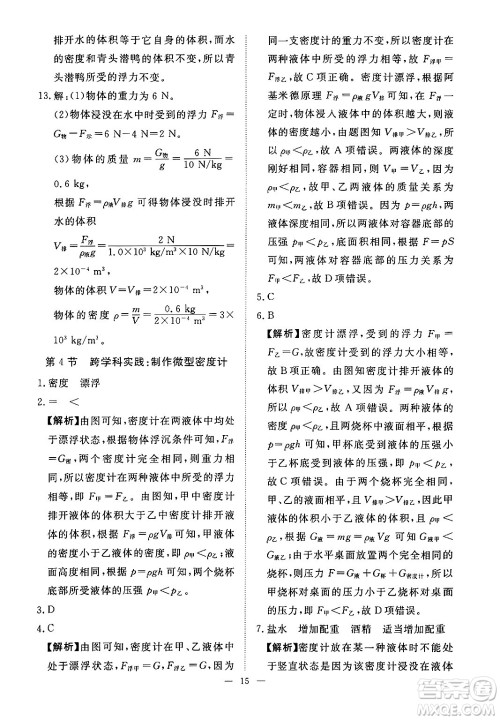 排开水的体积等于它自身的体积,而水
的密度和青头潜鸭的体积不变,则青头
潜鸭所受的浮力不变。
13.解:(1)物体的重力为 6 N。
(2)物体浸没在水中时受到的浮力 F浮=
G物-F示=6 N-4 N=2 N。
(3) 物体的质量 m=G物/g=6 N/10 N/kg=
0.6 kg,
根据 F浮=ρ液gV排可得物体浸没时排开
水的体积
V排=F浮/ρ液g=2 N/1.0×10³ kg/m³×10 N/kg=
2×10⁻⁴ m³,
物体的体积 V=V排=2×10⁻⁴ m³,
物体的密度 ρ=m/V=0.6 kg/2×10⁻⁴ m³=3×
10³ kg/m³。
第 4 节 跨学科实践:制作微型密度计
1.密度 漂浮
2.= <
【解析】由图可知,密度计在两液体中均
处于漂浮状态,根据物体浮沉条件可知,F浮
=G,两个密度计完全相同,则重力相
等,所以密度计在两种液体中所受的浮力
相等,即 F甲=F乙。由图可知,密度计排开甲
液体的体积大于乙中排开乙液体的体积,
根据 F浮=ρ液gV排可知,甲液体的密度
小于乙液体的密度,即 ρ甲<ρ乙,因为两烧杯中液
面高度相同,根据 p=ρgh 可知,两个烧杯
底部所受液体的压强 p甲<p乙。
3.D
4.C
【解析】由图可知,密度计在甲、乙液体中
均处于漂浮状态,所以 F浮=G,又因为是
同一支密度计的重力不变,所以密度计在
两种液体中所受的浮力相等,即 F甲=
F乙,故 C 项正确。密度计漂浮,根据阿
基米德原理 F浮=ρ液gV排可知,浮力一
定时,物体浸入液体中的体积越大,则液
体的密度越小,所以由 V排甲>V排乙可知
ρ甲<ρ乙,故 A 项错误。两液体的深度
刚好一样,容器底部的面积相同,根据 m
=ρV 可知,甲、乙两液体的质量关系为
m甲<m乙,故 B 项错误。根据 p=ρgh 可
知,两液体对容器底部的压强关系为
p甲<p乙,容器底面积相同,由 F=pS 可
知,两液体对容器底部的压力关系为
F甲<F乙,故 D 项错误。
5.C
6.B
【解析】密度计漂浮,由图可知,密度计所
受 F浮=G,所以密度计在甲、乙液体中所
受的浮力相等,由图可知,密度计排开液体的
体积 V排甲>V排乙,所以由 F浮=ρ液gV排
可知,ρ甲<ρ乙,故 A 项错误。由于甲、
乙烧杯中的液面相平,且两个烧杯相同,
由 p=ρgh 可知,甲杯底所受的压强小
于乙杯底所受的压强,故 B 项正确。由
于两支密度计完全相同,即重力相等,所
以密度计在两种液体中所受的浮力相等,
故 C 项错误。由图可知,V液甲<V液乙,又
ρ甲<ρ乙,根据 G液=mg=ρ液V液g 可知,
G液甲<G液乙;由于水平桌面放置两个完
全相同的烧杯,根据 F压=G液+G杯可知,
甲烧杯对桌面的压力小于乙烧杯对桌面
的压力,故 D 项错误。
7.盐水 增加配重 酒精 适当增加配重
【解析】密度计放在某一种液体时不能处
于竖直状态是因为该密度计的重心偏上,
15